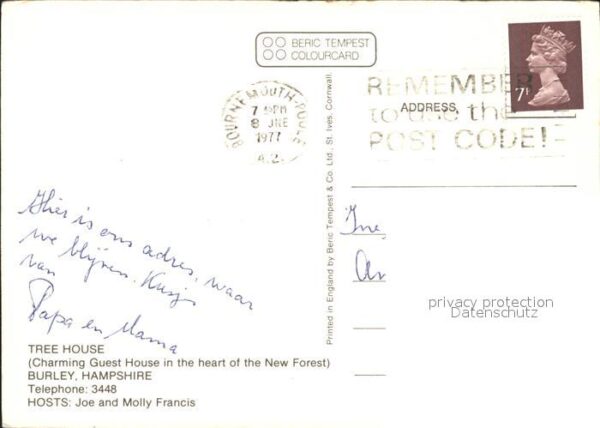 BERIC TEMPEST
COLOURCARD
BOURNEMOUTH-POOLE
7 PM
8 JNE
1977
A.2.
REMEMBER
to use the
POST CODE!
7P
ADDRESS,
Printed in England by Beric Tempest & Co. Ltd., St. Ives, Cornwall.
Hier is ons adres, waar
we blijven. Kusjes
van
Papa en Mama
privacy protection
Datenschutz
TREE HOUSE
(Charming Guest House in the heart of the New Forest)
BURLEY, HAMPSHIRE
Telephone: 3448
HOSTS: Joe and Molly Francis